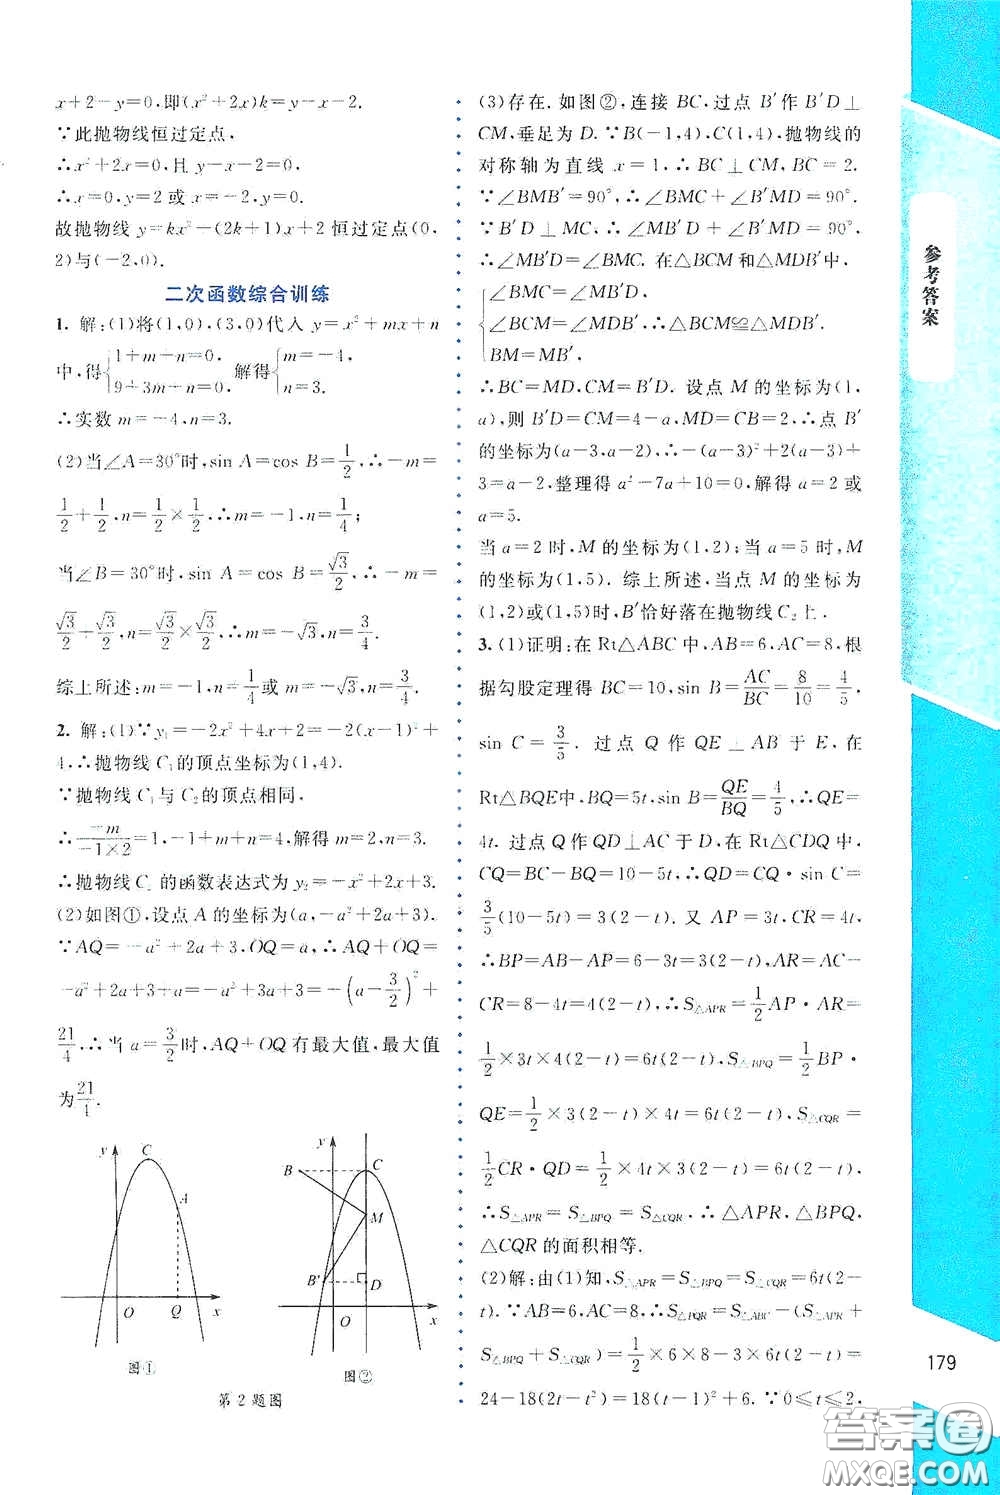 x+2-y=0,即(x²+2x)k=y-x-2.
∵此抛物线恒过定点,
∴x²+2x=0,且 y-x-2=0.
∴x=0,y=2 或 x=-2,y=0.
故抛物线 y=kx²-(2k+1)x+2 恒过定点(0,
2)与(-2,0).
二次函数综合训练
1. 解:(1)将(1,0),(3,0)代入 y=x²+mx+n
中,得{1+m+n=0, 9+3m+n=0, 解得{m=-4, n=3.
∴实数 m=-4,n=3.
(2)当∠A=30°时,sin A=cos B=1/2,∴-m=
1/2+1/2,n=1/2×1/2,∴m=-1,n=1/4;
当∠B=30°时,sin A=cos B=√3/2,∴-m=
√3/2+√3/2,n=√3/2×√3/2,∴m=-√3,n=3/4.
综上所述:m=-1,n=1/4或 m=-√3,n=3/4.
2. 解:(1)∵y₁=-2x²+4x+2=-2(x-1)²+
4,∴抛物线 C₁的顶点坐标为(1,4).
∵抛物线 C₁与 C₂的顶点相同,
∴-m/(-1×2)=1,-1+m+n=4,解得 m=2,n=3.
∴抛物线 C₂的函数表达式为 y₂=-x²+2x+3.
(2)如图①,设点 A 的坐标为(a,-a²+2a+3).
∵AQ=-a²+2a+3,OQ=a,∴AQ+OQ=
-a²+2a+3+a=-a²+3a+3=-(a-3/2)²+
21/4,∴当 a=3/2时,AQ+OQ 有最大值,最大值
为21/4.
y C A O Q x
图①
y B C M B′ D O x
图②
第 2 题图
(3)存在. 如图②,连接 BC,过点 B′作 B′D⊥
CM,垂足为 D. ∵B(-1,4),C(1,4),抛物线的
对称轴为直线 x=1,∴BC⊥CM,BC=2.
∵∠BMB′=90°,∴∠BMC+∠B′MD=90°.
∵B′D⊥MC,∴∠MB′D+∠B′MD=90°.
∴∠MB′D=∠BMC. 在△BCM和△MDB′中,
{∠BMC=∠MB′D,
∠BCM=∠MDB′,∴△BCM≌△MDB′.
BM=MB′,
∴BC=MD,CM=B′D. 设点 M 的坐标为(1,
a),则 B′D=CM=4-a,MD=CB=2,∴点 B′
的坐标为(a-3,a-2),∴-(a-3)²+2(a-3)+
3=a-2,整理得 a²-7a+10=0,解得 a=2 或
a=5.
当 a=2 时,M 的坐标为(1,2);当 a=5 时,M
的坐标为(1,5). 综上所述,当点 M 的坐标为
(1,2)或(1,5)时,B′恰好落在抛物线 C₂上.
3. (1)证明:在 Rt△ABC 中,AB=6,AC=8,根
据勾股定理得 BC=10,sin B=AC/BC=8/10=4/5,
sin C=3/5. 过点 Q 作 QE⊥AB 于 E,在
Rt△BQE中,BQ=5t,sin B=QE/BQ=4/5,∴QE=
4t. 过点 Q 作 QD⊥AC 于 D,在 Rt△CDQ 中,
CQ=BC-BQ=10-5t,∴QD=CQ·sin C=
3/5(10-5t)=3(2-t). 又 AP=3t,CR=4t,
∴BP=AB-AP=6-3t=3(2-t),AR=AC-
CR=8-4t=4(2-t),∴S△APR=1/2AP·AR=
1/2×3t×4(2-t)=6t(2-t),S△BPQ=1/2BP·
QE=1/2×3(2-t)×4t=6t(2-t),S△CQR=
1/2CR·QD=1/2×4t×3(2-t)=6t(2-t),
∴S△APR=S△BPQ=S△CQR. ∴△APR,△BPQ,
△CQR 的面积相等.
(2)解:由(1)知,S△APR=S△BPQ=S△CQR=6t(2-
t). ∵AB=6,AC=8,∴S△PQR=S△ABC-(S△APR+
S△BPQ+S△CQR)=1/2×6×8-3×6t(2-t)=
24-18(2t-t²)=18(t-1)²+6. ∵0≤t≤2,
参考答案
179
答案圈
MXQE.COM